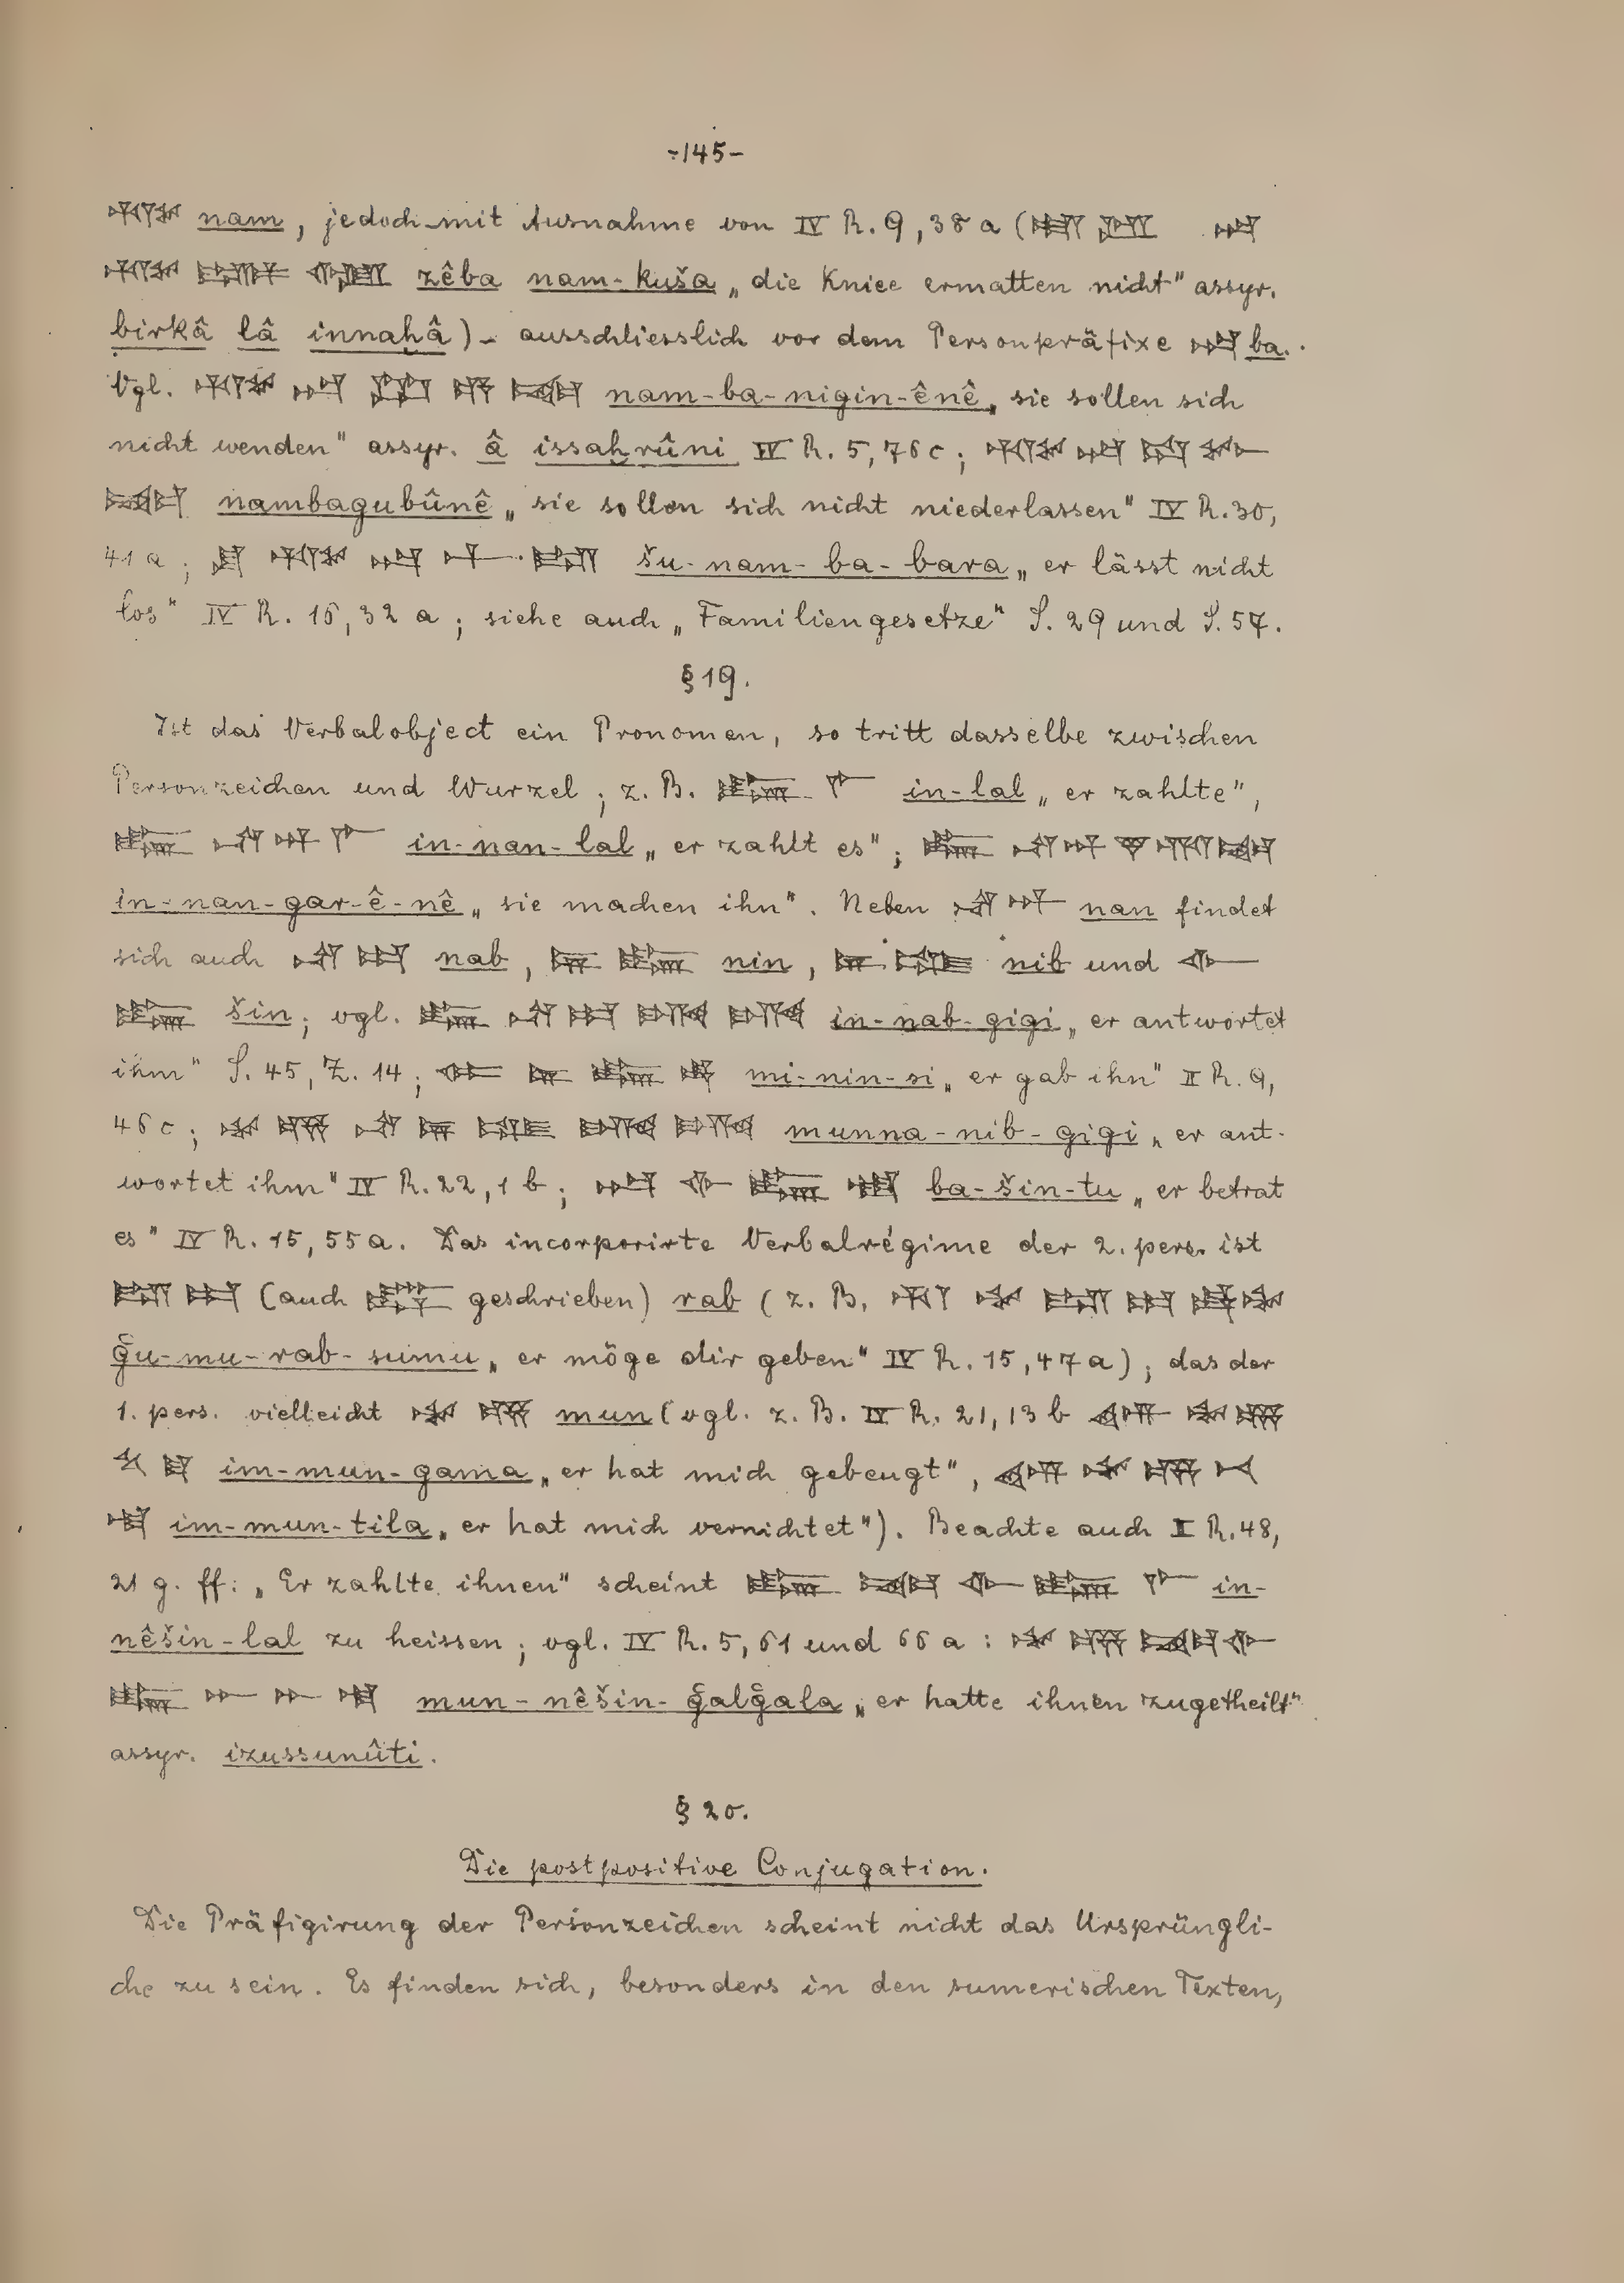 -145-
𒉆 nam, jedoch mit Ausnahme von IV R. 9, 38 a (
zêba nam-kuša „die Kniee ermatten nicht" assyr.
birkâ lâ innaḫâ) - ausschliesslich vor dem Personpräfixe 𒁀 ba.
Vgl. 𒉆 𒁀 nam-ba-nigin-ênê „sie sollen sich
nicht wenden" assyr. â issaḫrûni IV R. 5, 76 c; 𒉆 𒁀
nambagubûnê „sie sollen sich nicht niederlassen" IV R. 30,
41 a; 𒋗 𒉆 𒁀 𒁇 𒊏 šu-nam-ba-bara „er lässt nicht
los" IV R. 16, 32 a; siehe auch „Familiengesetze" S. 29 und S. 57.
§ 19.
Ist das Verbalobject ein Pronomen, so tritt dasselbe zwischen
Personzeichen und Wurzel; z. B. 𒅔 𒇲 in-lal „er zahlte",
𒅔 𒈾 𒀭 𒇲 in-nan-lal „er zahlt es"; 𒅔 𒈾 𒀭 𒃻 𒂊 𒉈
in-nan-gar-ê-nê „sie machen ihn". Neben 𒈾 𒀭 nan findet
sich auch 𒈾 𒀊 nab, 𒉌 𒅔 nin, 𒉌 𒅁 nib und 𒅆
𒅔 šin; vgl. 𒅔 𒈾 𒀊 𒄄 𒄄 in-nab-gigi „er antwortet
ihm" S. 45, Z. 14; 𒈪 𒉌 𒅔 𒋛 mi-nin-si „er gab ihn" II R. 9,
46 c; 𒈬 𒌦 𒈾 𒉌 𒅁 𒄄 𒄄 munna-nib-gigi „er ant-
wortet ihm" IV R. 22, 1 b; 𒁀 𒅆 𒅔 𒌅 ba-šin-tu „er betrat
es" IV R. 15, 55 a. Das incorporirte Verbalrégime der 2. pers. ist
𒊏 𒀊 (auch geschrieben) rab (z. B. 𒄷 𒈬 𒊏 𒀊 𒋧 𒈬
g̃u-mu-rab-sumu „er möge dir geben" IV R. 15, 47 a); das der
1. pers. vielleicht 𒈬 𒌦 mun (vgl. z. B. IV R. 21, 13 b 𒅎 𒈬 𒌦
𒃵 𒈠 im-mun-gama „er hat mich gebeugt", 𒅎 𒈬 𒌦 𒁁
𒆷 im-mun-tila „er hat mich vernichtet"). Beachte auch II R. 48,
21 g. ff: „Er zahlte ihnen" scheint 𒅔 𒉈 𒅆 𒅔 𒇲 in-
nêšin-lal zu heissen; vgl. IV R. 5, 61 und 66 a: 𒈬 𒌦 𒉈 𒅆
𒅔 𒄬 𒄬 𒆷 mun-nêšin-g̃alg̃ala „er hatte ihnen zugetheilt"
assyr. izussunûti.
§ 20.
Die postpositive Conjugation.
Die Präfigirung der Personzeichen scheint nicht das Ursprüngli-
che zu sein. Es finden sich, besonders in den sumerischen Texten,